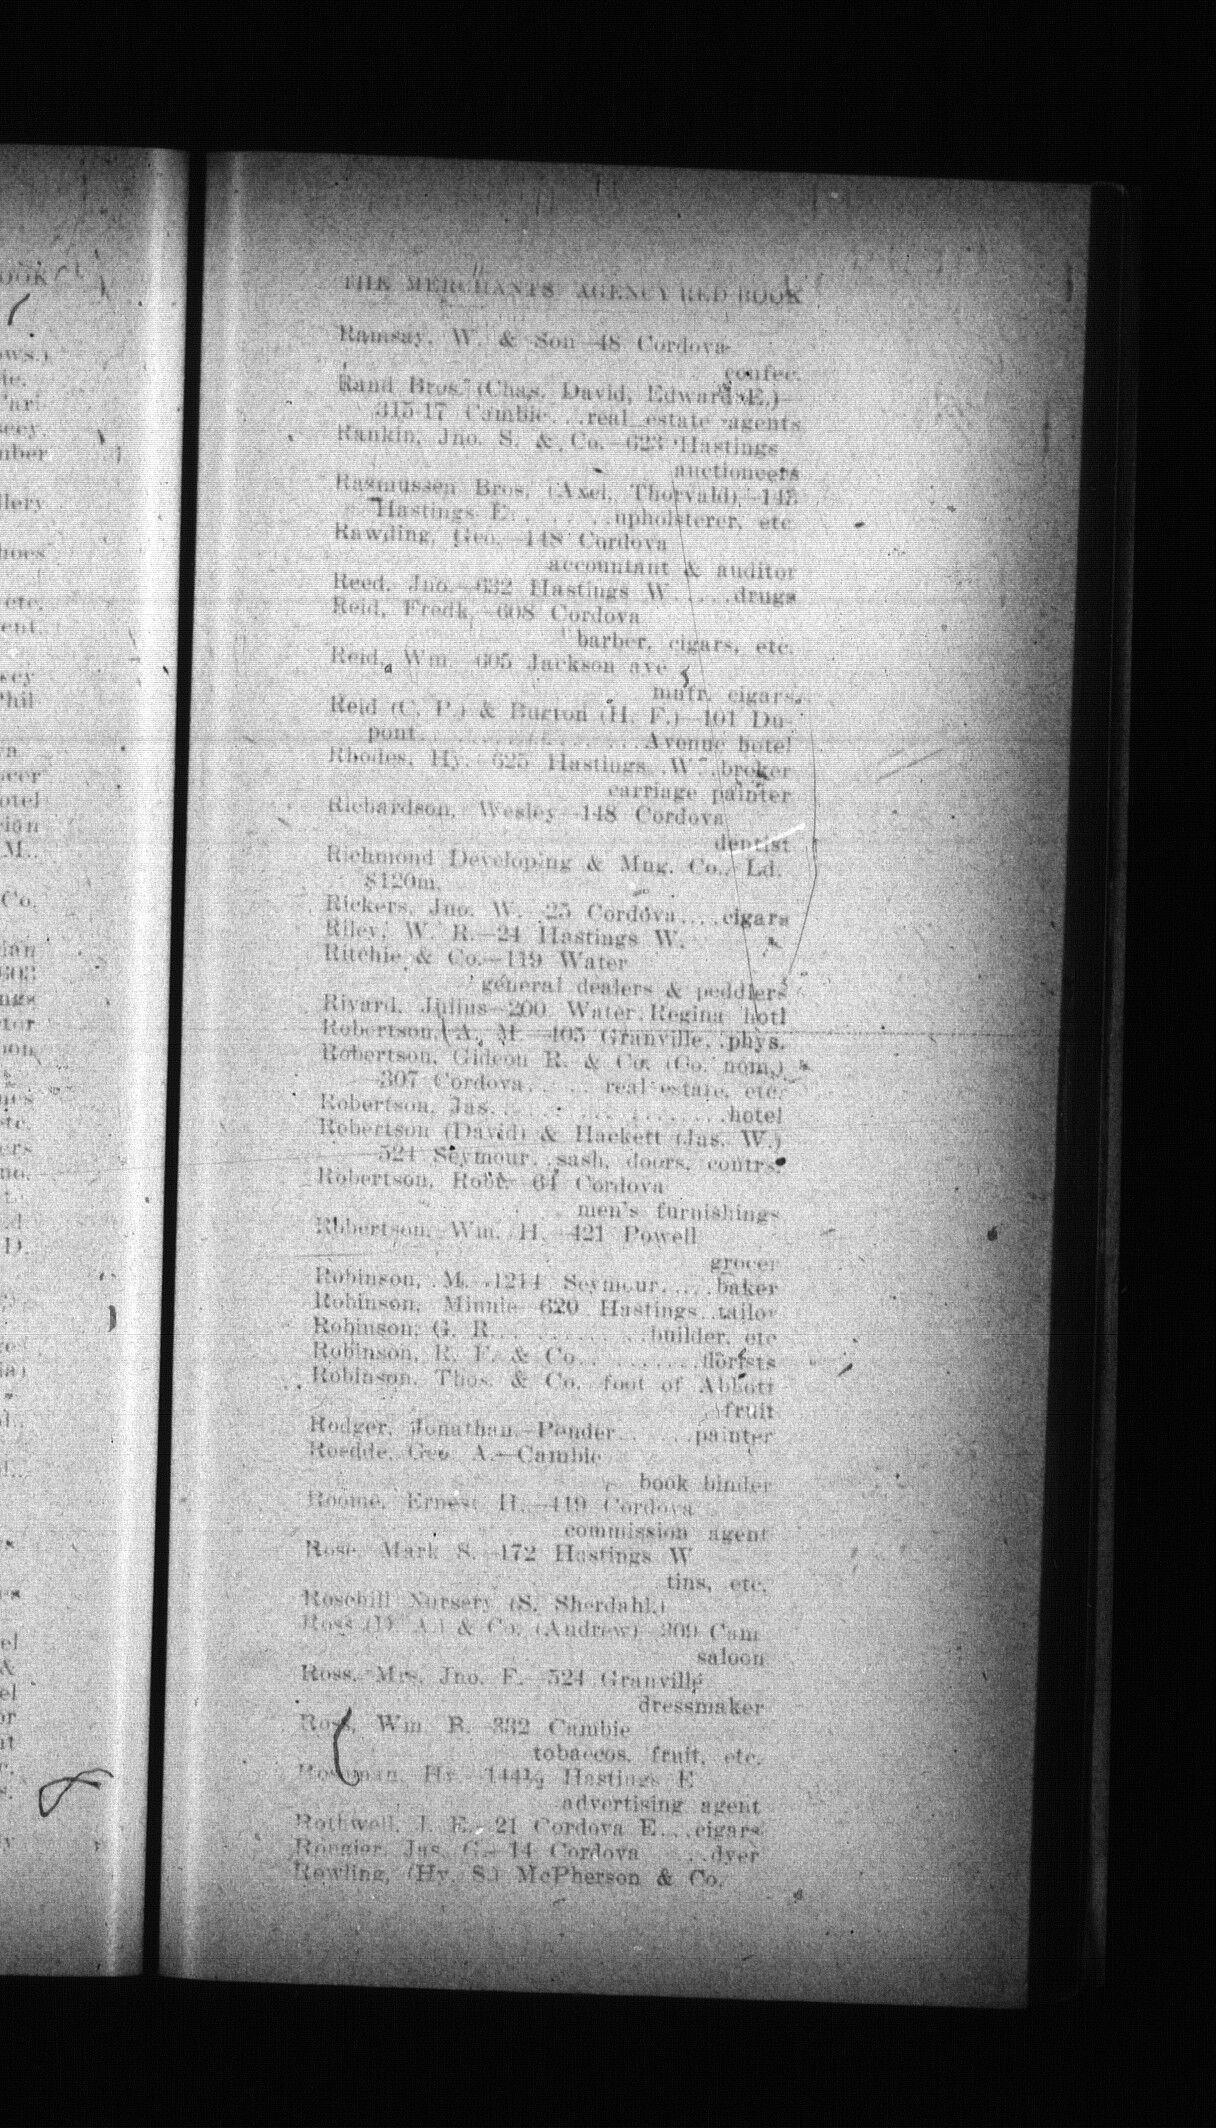 THE MERCHANTS' AGENCY RED BOOK
Ramsay, W. & Son—48 Cordova
confec.
Rand Bros. (Chas. David, Edward E.)—
315-17 Cambie...real estate agents
Rankin, Jno. S. & Co.—623 Hastings
auctioneers
Rasmussen Bros. (Axel, Thorvald)—
Hastings E.......upholsterer, etc
Rawding, Geo.—148 Cordova
accountant & auditor
Reed, Jno.—632 Hastings W.....drugs
Reid, Fredk.—608 Cordova
barber, cigars, etc.
Reid, Wm. 605 Jackson ave
mnfr. cigars.
Reid (C. P.) & Burton (H. F.)—101 Du-
pont..............Avenue hotel
Rhodes, Hy.—625 Hastings W..broker
carriage painter
Richardson, Wesley—148 Cordova
dentist
Richmond Developing & Mng. Co., Ld.
$120m.
Rickers, Jno. W. 25 Cordova....cigars
Riley, W. R.—24 Hastings W.
Ritchie & Co.—119 Water
general dealers & peddlers
Rivard, Julius—200 Water.Regina hotl
Robertson, A. M.—405 Granville..phys.
Robertson, Gideon R. & Co. (Co. nom.)
—307 Cordova......real estate, etc.
Robertson, Jas..................hotel
Robertson (David) & Hackett (Jas. W.)
—524 Seymour..sash, doors, contrs.
Robertson, Robt.—64 Cordova
men's furnishings
Robertson, Wm. H.—421 Powell
grocer
Robinson, M. 1214 Seymour.....baker
Robinson, Minnie—620 Hastings..tailor
Robinson, G. R.............builder, etc
Robinson, R. F. & Co.........florists
Robinson, Thos. & Co. foot of Abbott
fruit
Rodger, Jonathan—Pender......painter
Roedde, Geo. A.—Cambie
book binder
Roome, Ernest H.—419 Cordova
commission agent
Rose, Mark S.—172 Hastings W
tins, etc.
Rosehill Nursery (S. Sherdahl.)
Ross (D. A.) & Co. (Andrew)—209 Cam
saloon
Ross, Mrs. Jno. F.—524 Granville
dressmaker
Ross, Wm. R.—332 Cambie
tobaccos, fruit, etc.
Hy.—144½ Hastings E
advertising agent
Rothwell, J. E. 21 Cordova E...cigars
Rougier, Jas. G.—14 Cordova.....dyer
Rowling, (Hy. S.) McPherson & Co.